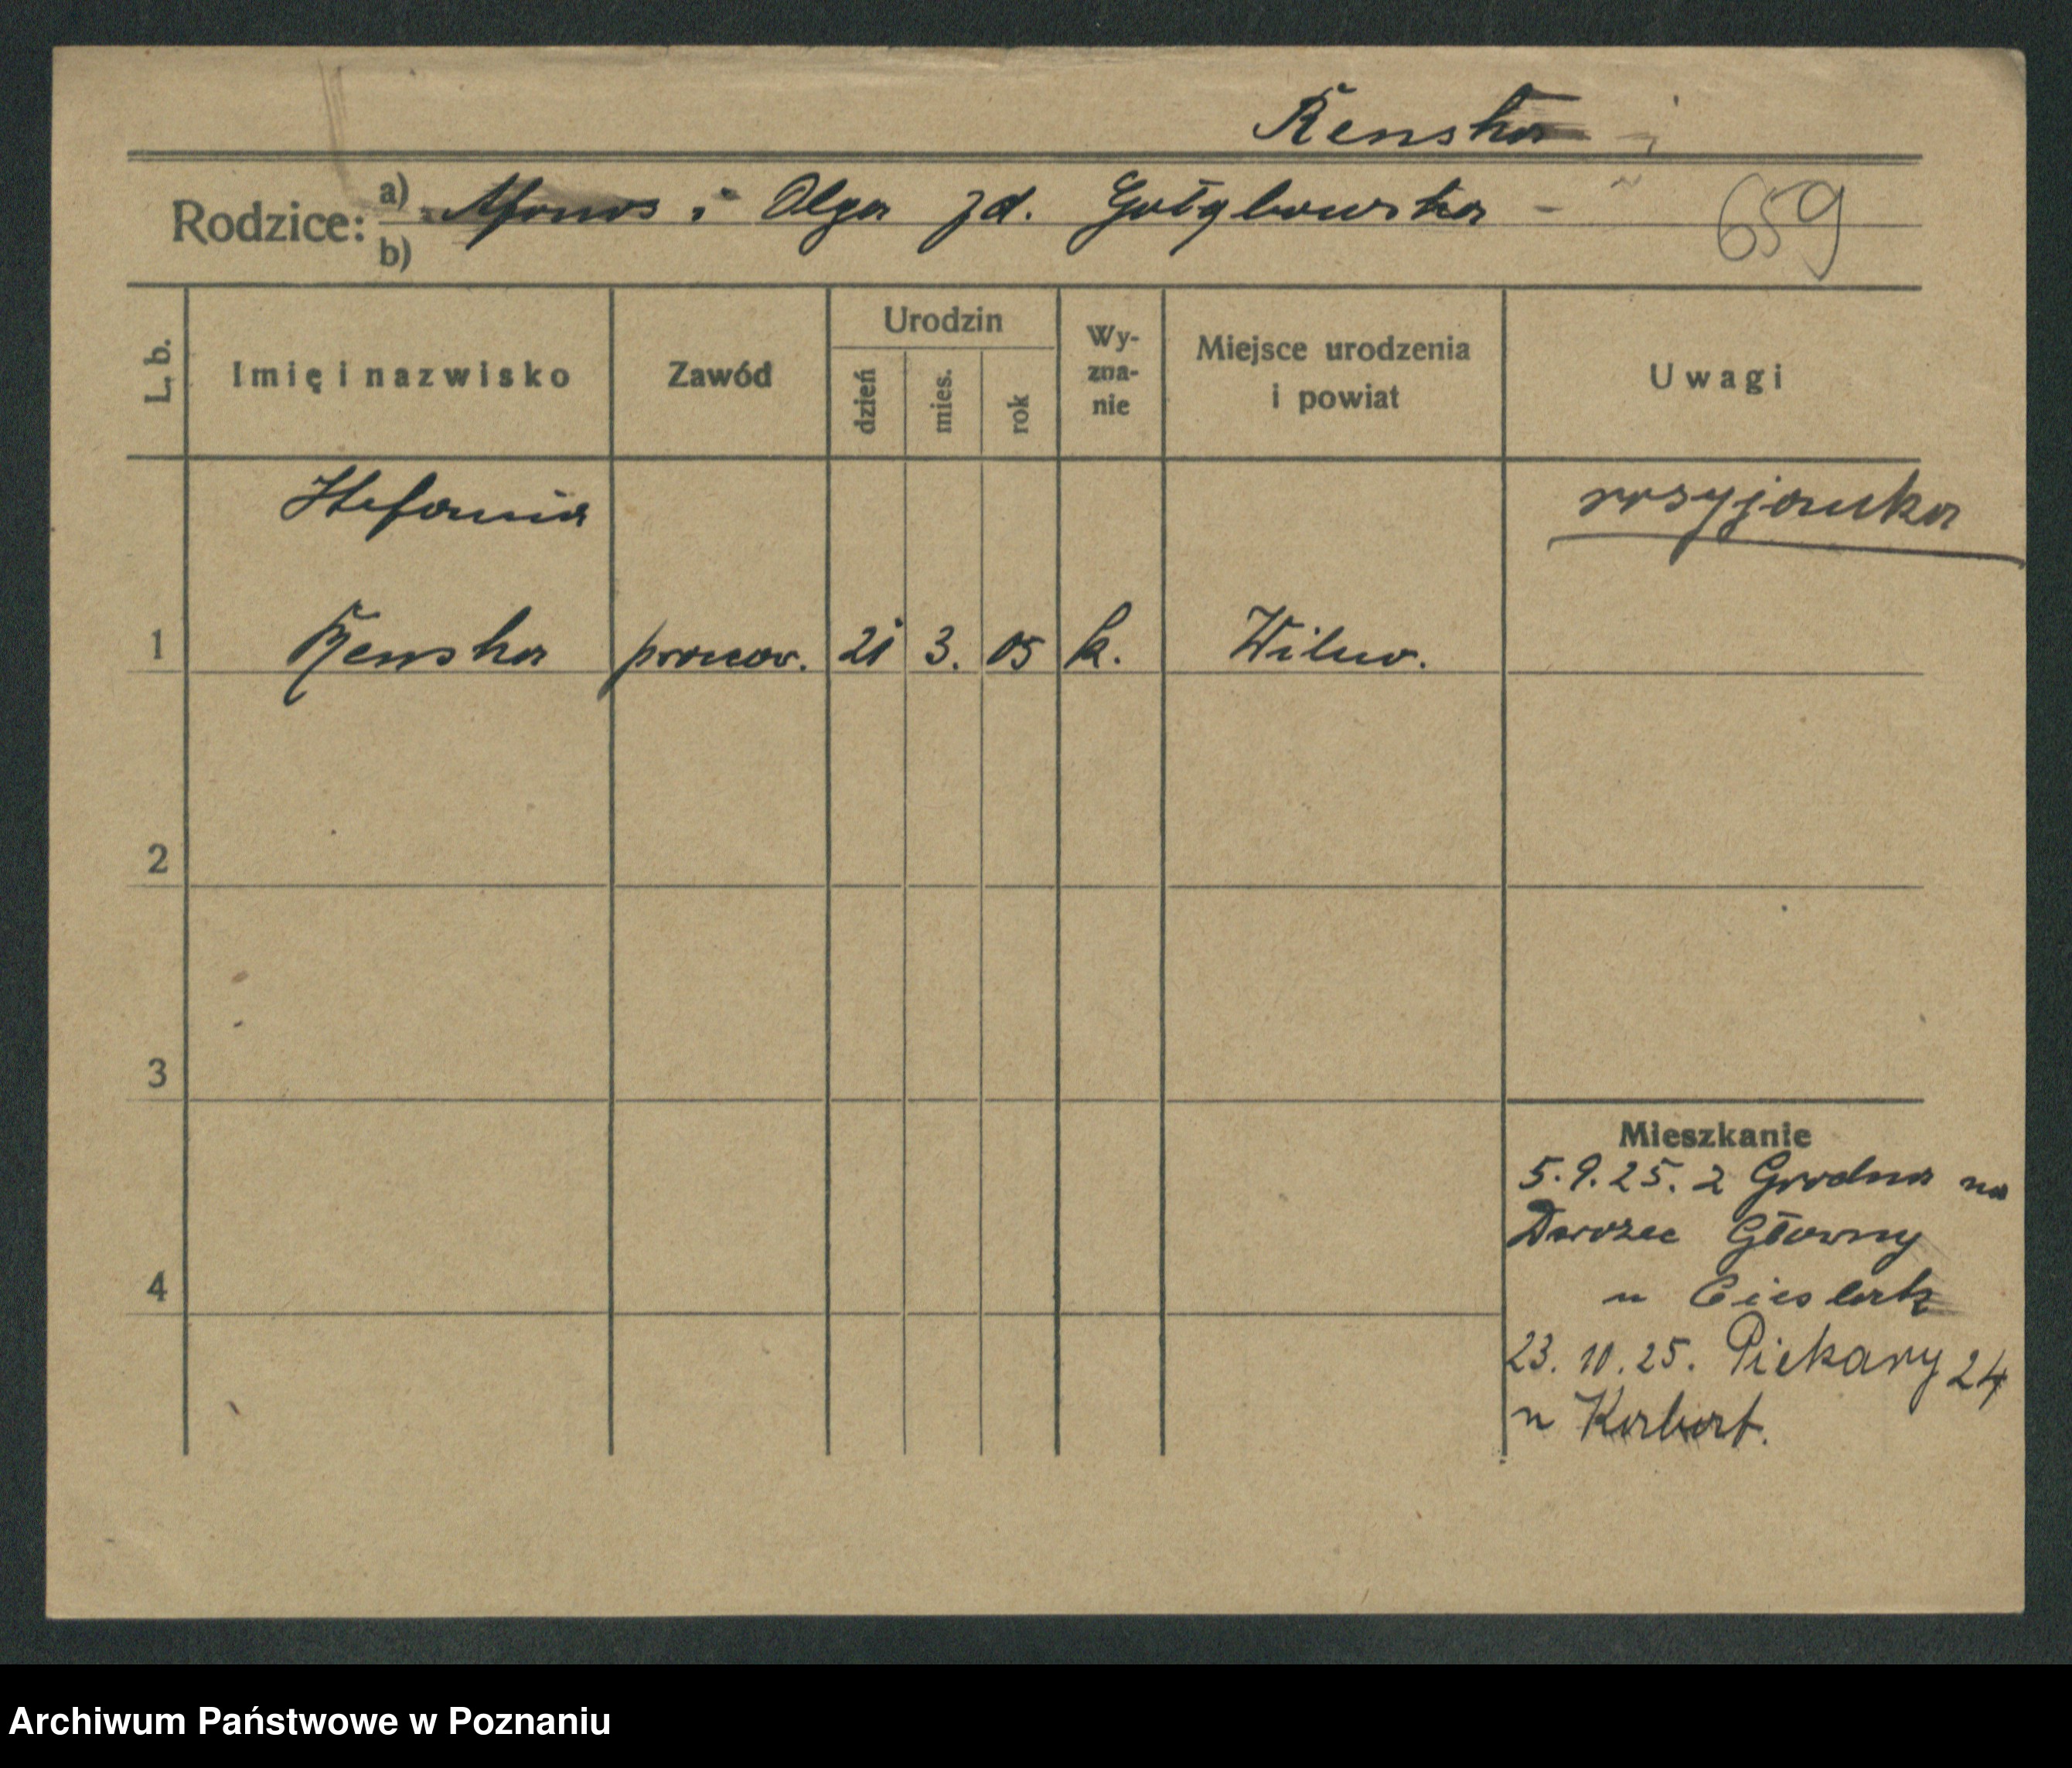 Renska
Rodzice: a) Afonos i Olga zd. Gołąbowska -
b)
659
L. b.
Imię i nazwisko
Zawód
Urodzin
dzień
mies.
rok
Wy-
zna-
nie
Miejsce urodzenia
i powiat
Uwagi
Stefania
rosyjanka
1 Renska 21 3. 05 k. Wilno.
2
3
4
Mieszkanie
5.9.25. z Grodna na
Dworzec Głowny
u Cieslak
23. 10. 25. Piekary 24
u Korbort.
Archiwum Państwowe w Poznaniu